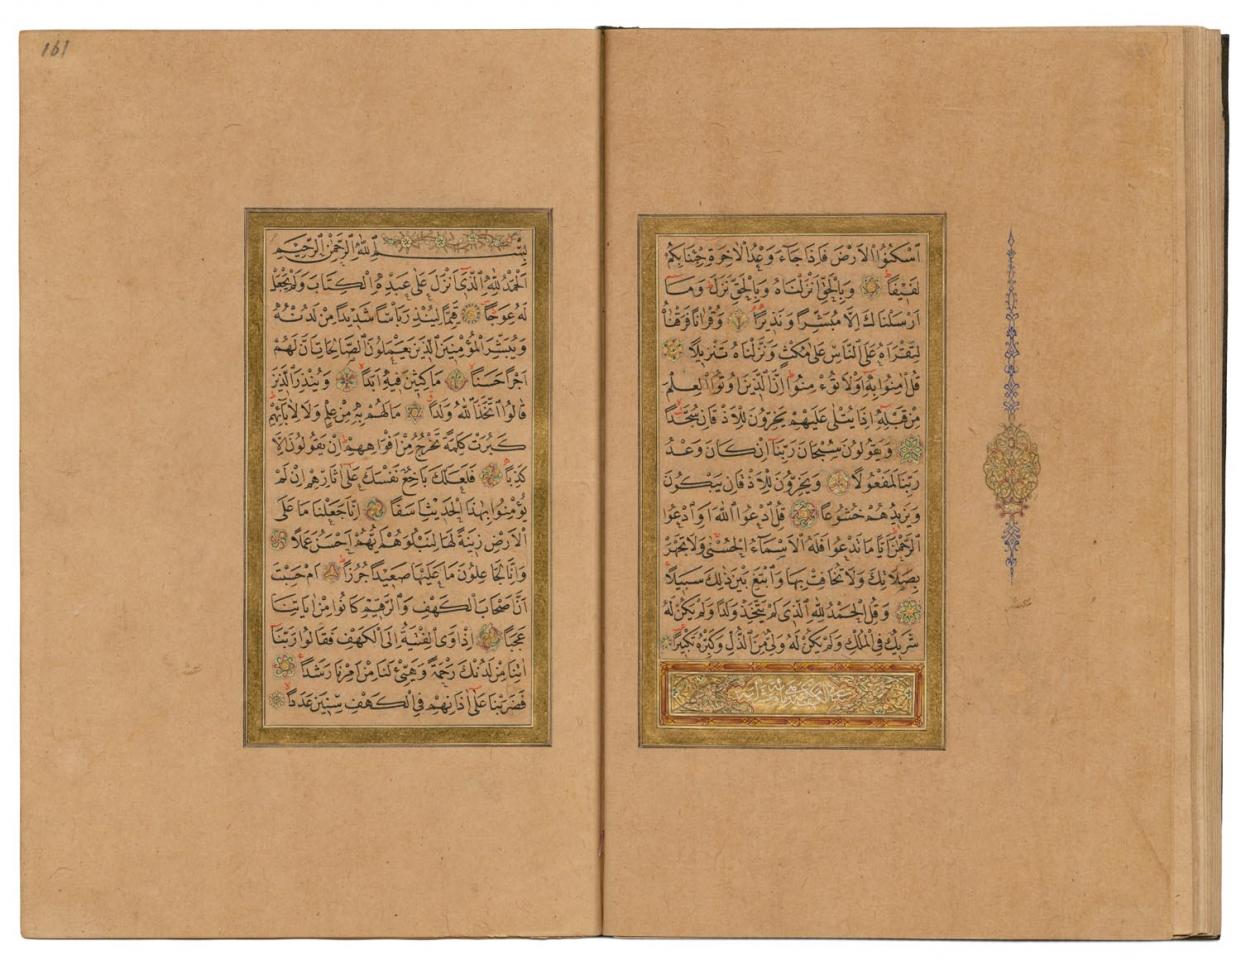 اسْكُنُوا الْاَرْضَ فَاِذَا جَٓاءَ وَعْدُ الْاٰخِرَةِ جِئْنَا بِكُمْ
لَفِيفًا وَبِالْحَقِّ اَنْزَلْنَاهُ وَبِالْحَقِّ نَزَلَ وَمَا
اَرْسَلْنَاكَ اِلَّا مُبَشِّرًا وَنَذِيرًا وَقُرْاٰنًا فَرَقْنَاهُ
لِتَقْرَاَهُ عَلَى النَّاسِ عَلٰى مُكْثٍ وَنَزَّلْنَاهُ تَنْزِيلًا
قُلْ اٰمِنُوا بِهِ اَوْ لَا تُؤْمِنُوا اِنَّ الَّذِينَ اُوتُوا الْعِلْمَ
مِنْ قَبْلِهِ اِذَا يُتْلٰى عَلَيْهِمْ يَخِرُّونَ لِلْاَذْقَانِ سُجَّدًا
وَيَقُولُونَ سُبْحَانَ رَبِّنَا اِنْ كَانَ وَعْدُ
رَبِّنَا لَمَفْعُولًا وَيَخِرُّونَ لِلْاَذْقَانِ يَبْكُونَ
وَيَزِيدُهُمْ خُشُوعًا قُلِ ادْعُوا اللّٰهَ اَوِ ادْعُوا
الرَّحْمٰنَ اَيًّا مَا تَدْعُوا فَلَهُ الْاَسْمَٓاءُ الْحُسْنٰى وَلَا تَجْهَرْ
بِصَلَاتِكَ وَلَا تُخَافِتْ بِهَا وَابْتَغِ بَيْنَ ذٰلِكَ سَبِيلًا
وَقُلِ الْحَمْدُ لِلّٰهِ الَّذِى لَمْ يَتَّخِذْ وَلَدًا وَلَمْ يَكُنْ لَهُ
شَرِيكٌ فِى الْمُلْكِ وَلَمْ يَكُنْ لَهُ وَلِىٌّ مِنَ الذُّلِّ وَكَبِّرْهُ تَكْبِيرًا
161
بِسْمِ اللّٰهِ الرَّحْمٰنِ الرَّحِيمِ
اَلْحَمْدُ لِلّٰهِ الَّذِى اَنْزَلَ عَلٰى عَبْدِهِ الْكِتَابَ وَلَمْ يَجْعَلْ
لَهُ عِوَجًا قَيِّمًا لِيُنْذِرَ بَاْسًا شَدِيدًا مِنْ لَدُنْهُ
وَيُبَشِّرَ الْمُؤْمِنِينَ الَّذِينَ يَعْمَلُونَ الصَّالِحَاتِ اَنَّ لَهُمْ
اَجْرًا حَسَنًا مَاكِثِينَ فِيهِ اَبَدًا وَيُنْذِرَ الَّذِينَ
قَالُوا اتَّخَذَ اللّٰهُ وَلَدًا مَا لَهُمْ بِهِ مِنْ عِلْمٍ وَلَا لِاٰبَائِهِمْ
كَبُرَتْ كَلِمَةً تَخْرُجُ مِنْ اَفْوَاهِهِمْ اِنْ يَقُولُونَ اِلَّا
كَذِبًا فَلَعَلَّكَ بَاخِعٌ نَفْسَكَ عَلٰى اٰثَارِهِمْ اِنْ لَمْ
يُؤْمِنُوا بِهٰذَا الْحَدِيثِ اَسَفًا اِنَّا جَعَلْنَا مَا عَلَى
الْاَرْضِ زِينَةً لَهَا لِنَبْلُوَهُمْ اَيُّهُمْ اَحْسَنُ عَمَلًا
وَاِنَّا لَجَاعِلُونَ مَا عَلَيْهَا صَعِيدًا جُرُزًا اَمْ حَسِبْتَ
اَنَّ اَصْحَابَ الْكَهْفِ وَالرَّقِيمِ كَانُوا مِنْ اٰيَاتِنَا
عَجَبًا اِذْ اَوَى الْفِتْيَةُ اِلَى الْكَهْفِ فَقَالُوا رَبَّنَا
اٰتِنَا مِنْ لَدُنْكَ رَحْمَةً وَهَيِّئْ لَنَا مِنْ اَمْرِنَا رَشَدًا
فَضَرَبْنَا عَلٰى اٰذَانِهِمْ فِى الْكَهْفِ سِنِينَ عَدَدًا